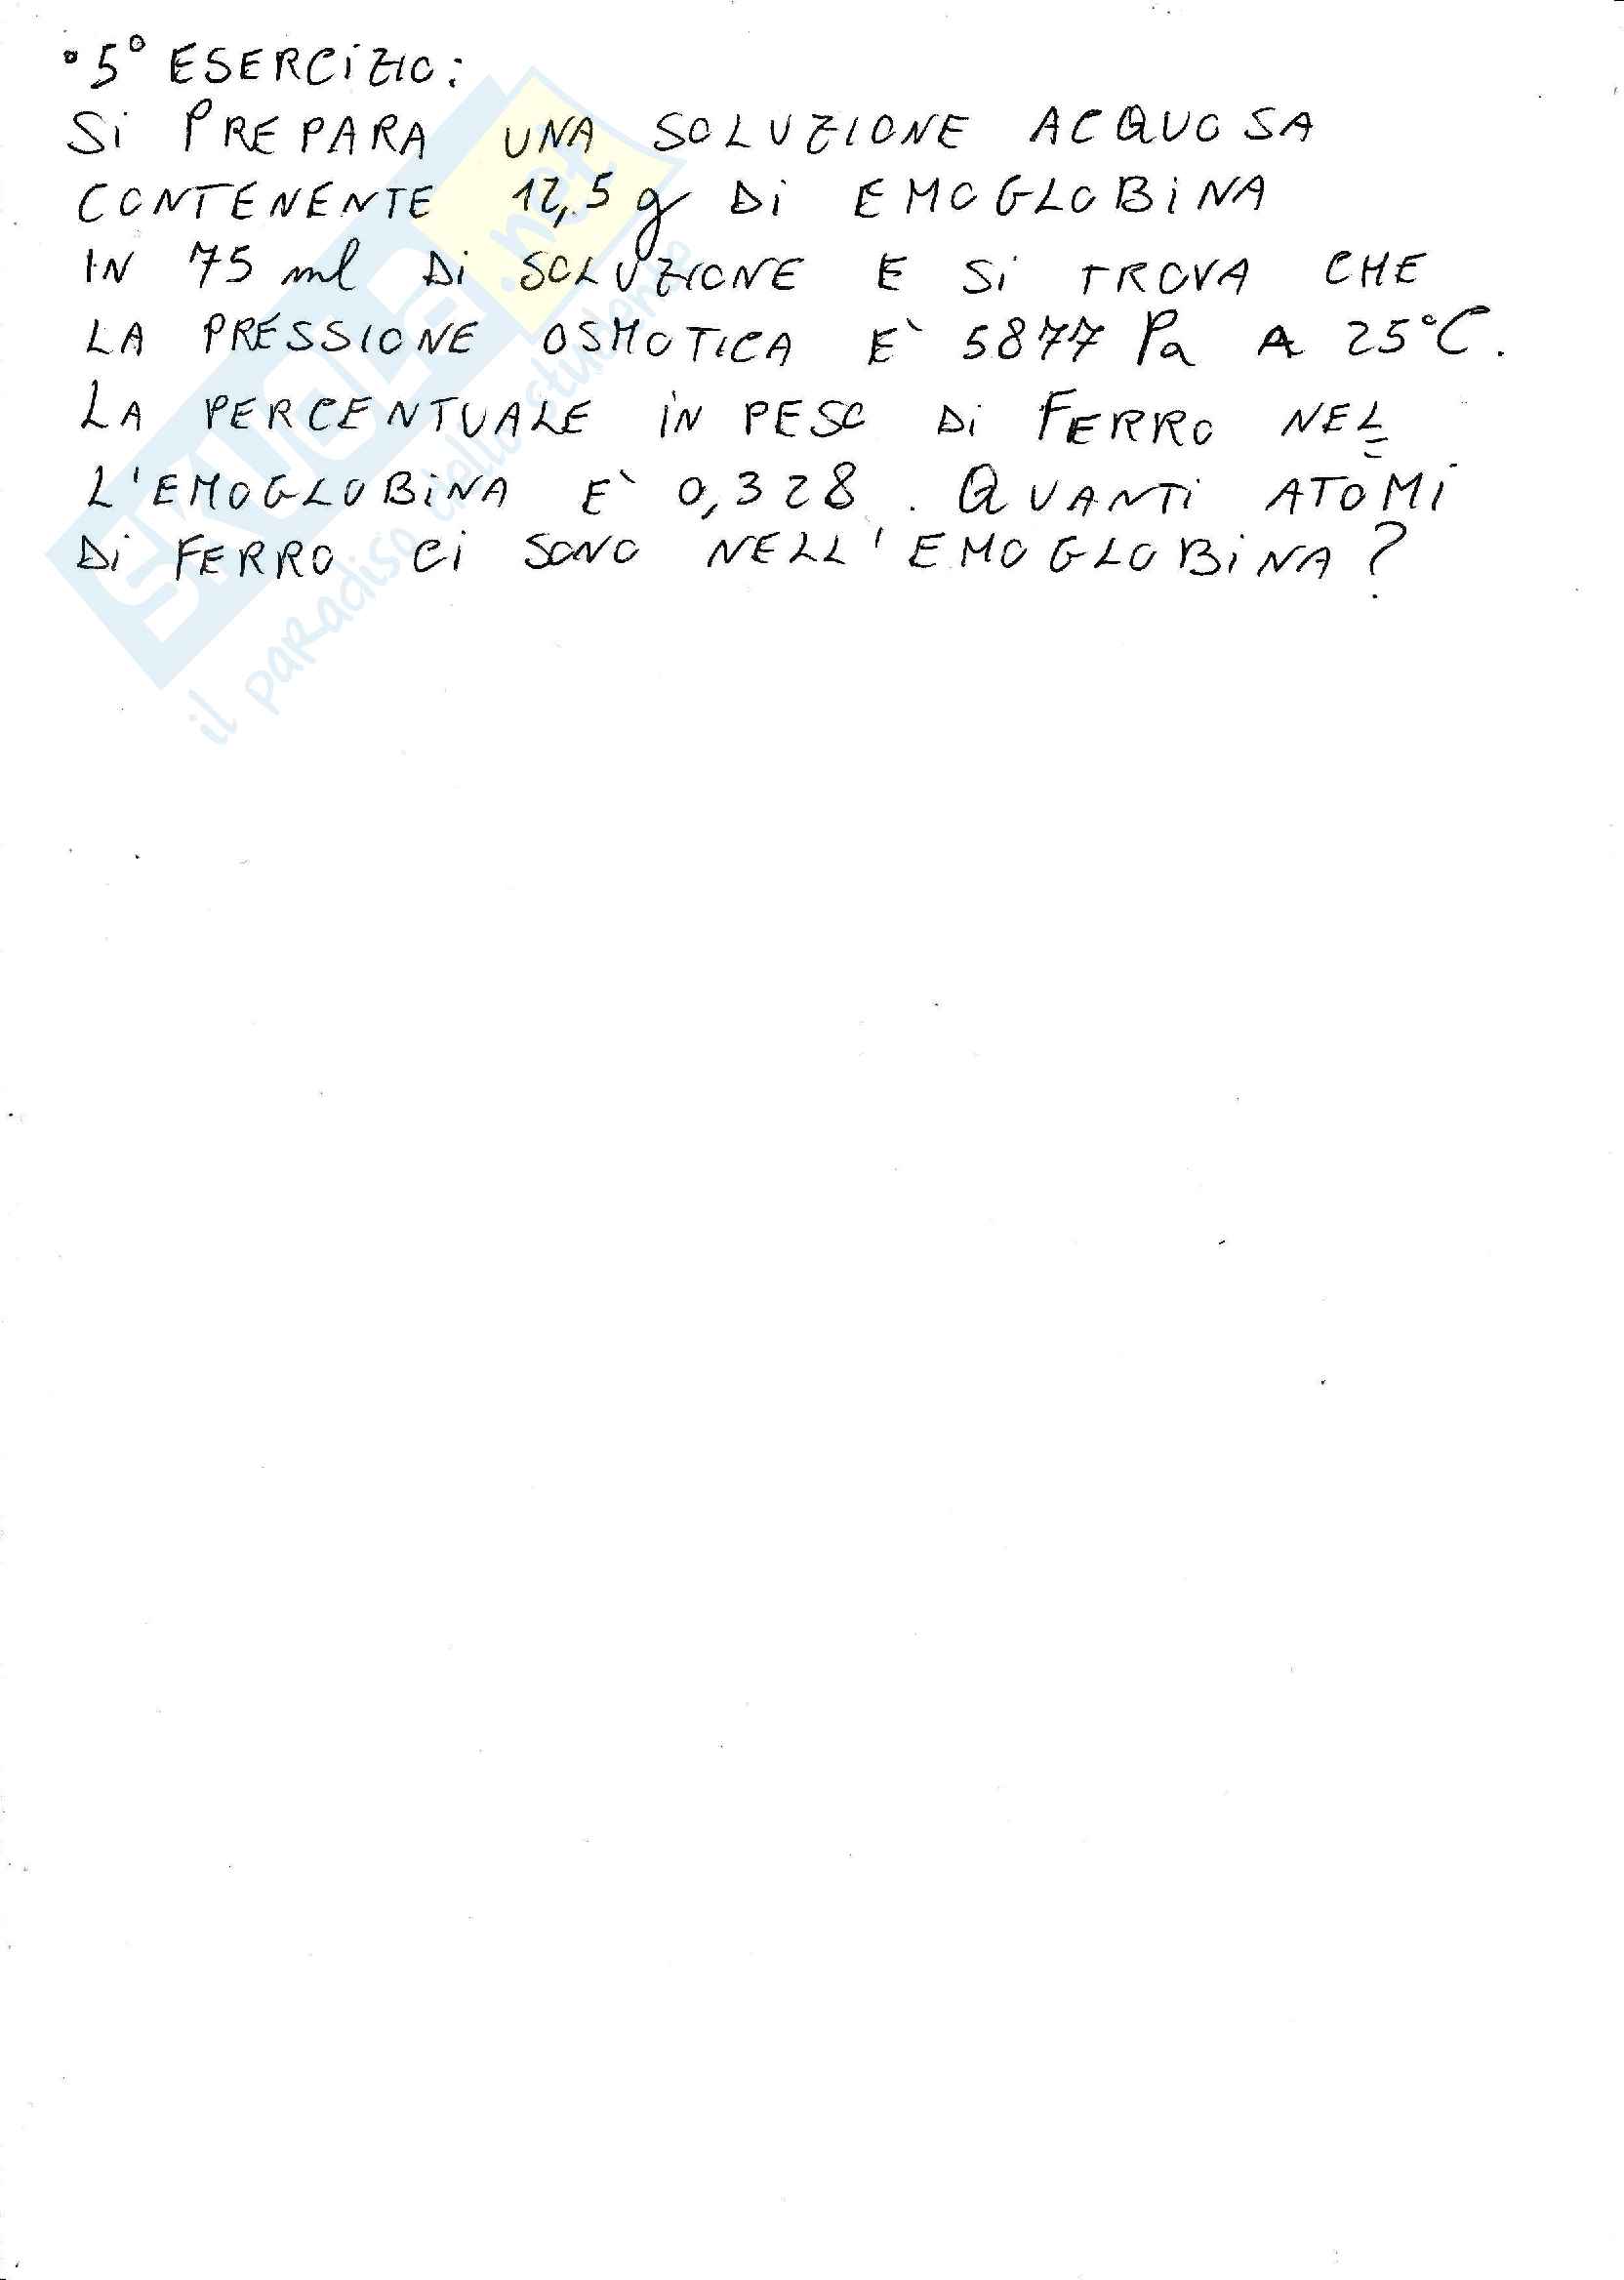 ° 5° ESERCIZIO:
Si PREPARA UNA SOLUZIONE ACQUOSA
CONTENENTE 12,5 g Di EMOGLOBINA
IN 75 ml Di SOLUZIONE E Si TROVA CHE
LA PRESSIONE OSMOTICA E` 5877 Pa A 25°C.
LA PERCENTUALE iN PESO Di FERRO NEL=
L'EMOGLOBINA E` 0,328. QUANTi ATOMi
Di FERRO Ci SONO NELL'EMOGLOBINA?
SKUOLA.net
il paradiso dello studente